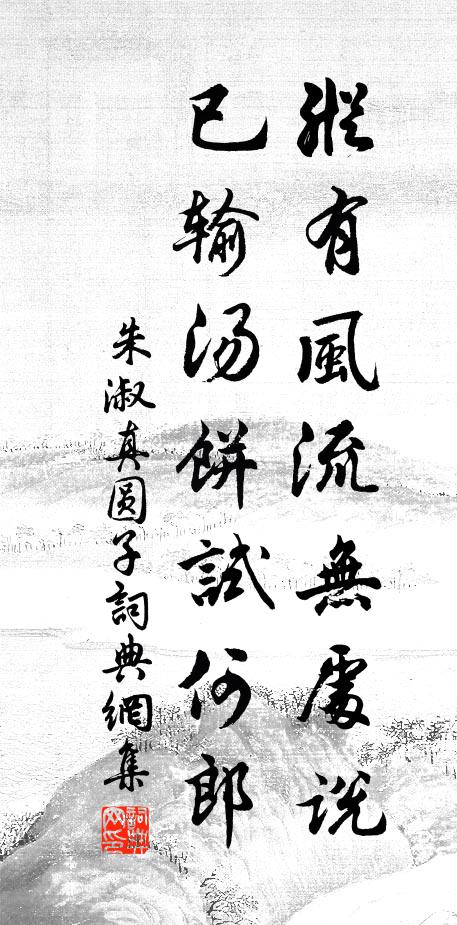 縱有風流無處說
已输汤餅試何郎
朱淑真圆子詞典網集